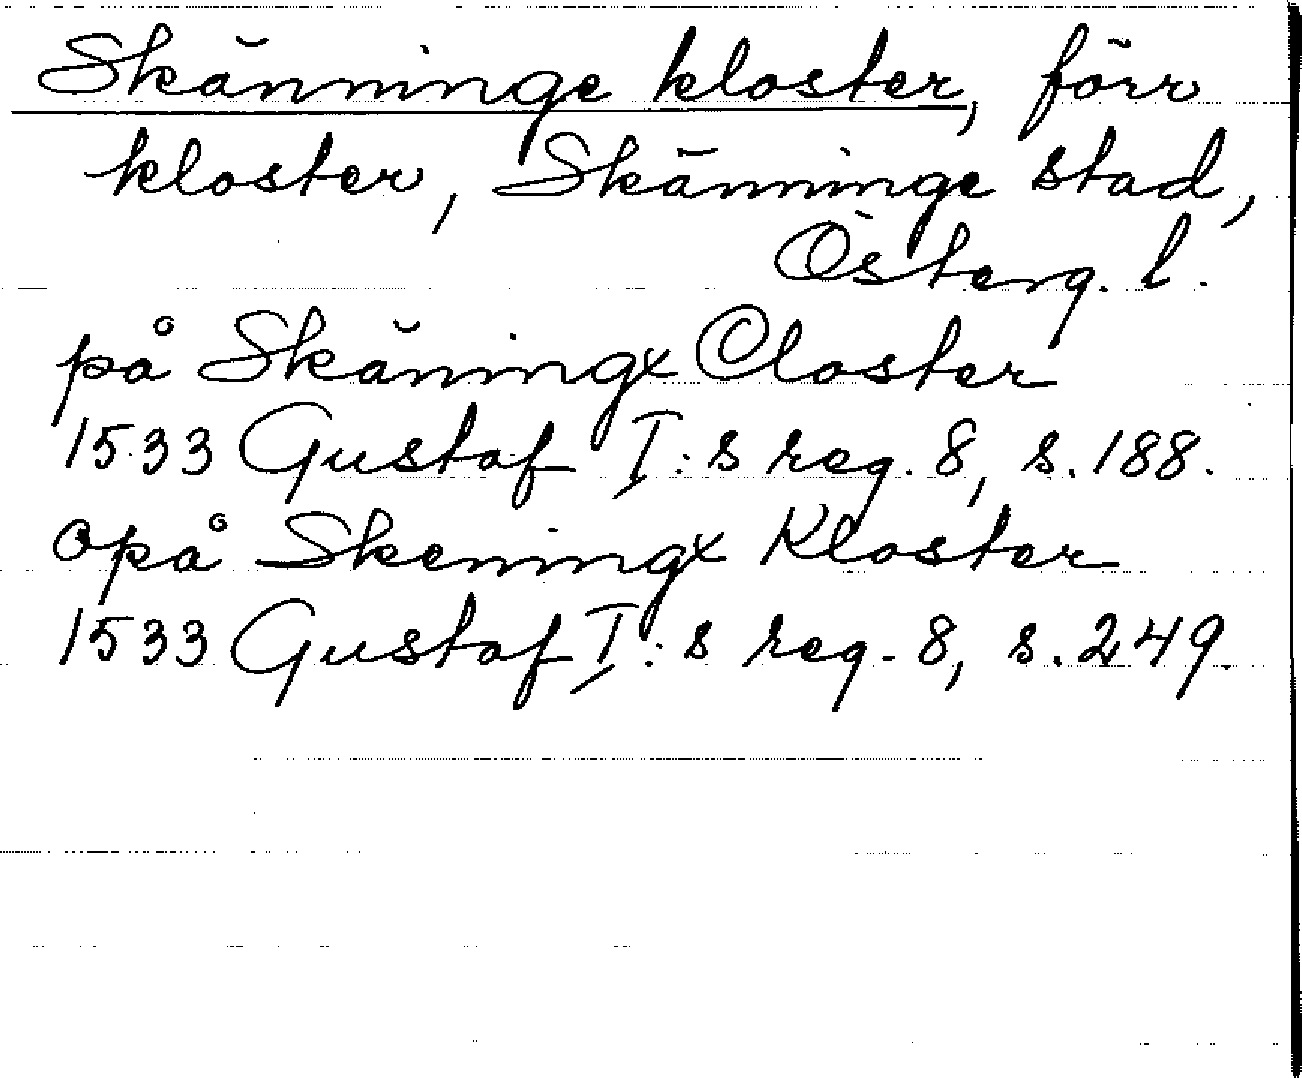 Skänninge kloster, förr
kloster, Skänninge stad,
Österg. l.
på Skäningx Closter
1533 Gustaf I:s reg. 8, s. 188.
opå Skeningx Kloster
1533 Gustaf I:s reg. 8, s. 249.